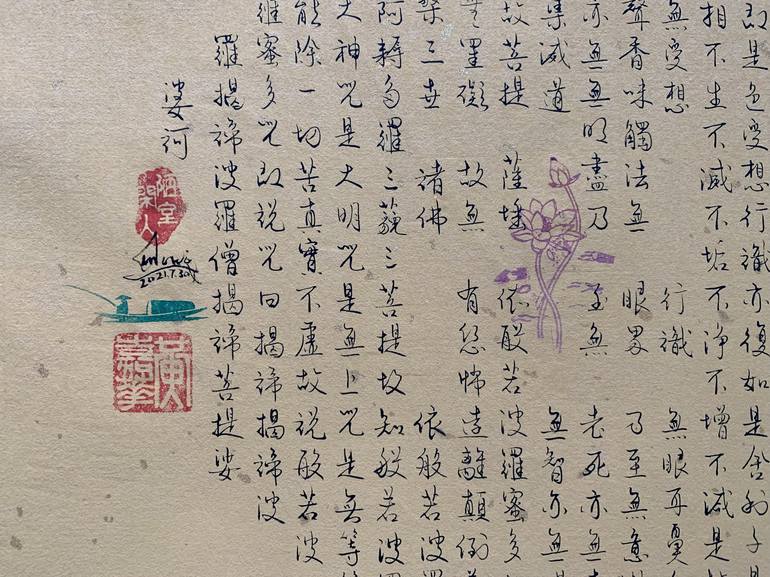 即是色受想行識亦復如是舍利子是
相不生不滅不垢不淨不增不減是
無受想 行識 無眼耳鼻
聲香味觸法無 眼界 乃至無意
亦無無明盡乃 至無 老死亦無
集滅道 無智亦無
故菩提 薩埵 依般若波羅蜜多
無罣礙 故無 有恐怖遠離顛倒
槃三世 諸佛 依般若波
阿耨多羅三藐三菩提故知般若波
大神咒是大明咒是無上咒是無等
能除一切苦真實不虛故說般若波
羅蜜多咒即說咒曰揭諦揭諦波
羅揭諦波羅僧揭諦菩提娑
婆訶
陋室閑人
2021.7.30
黃